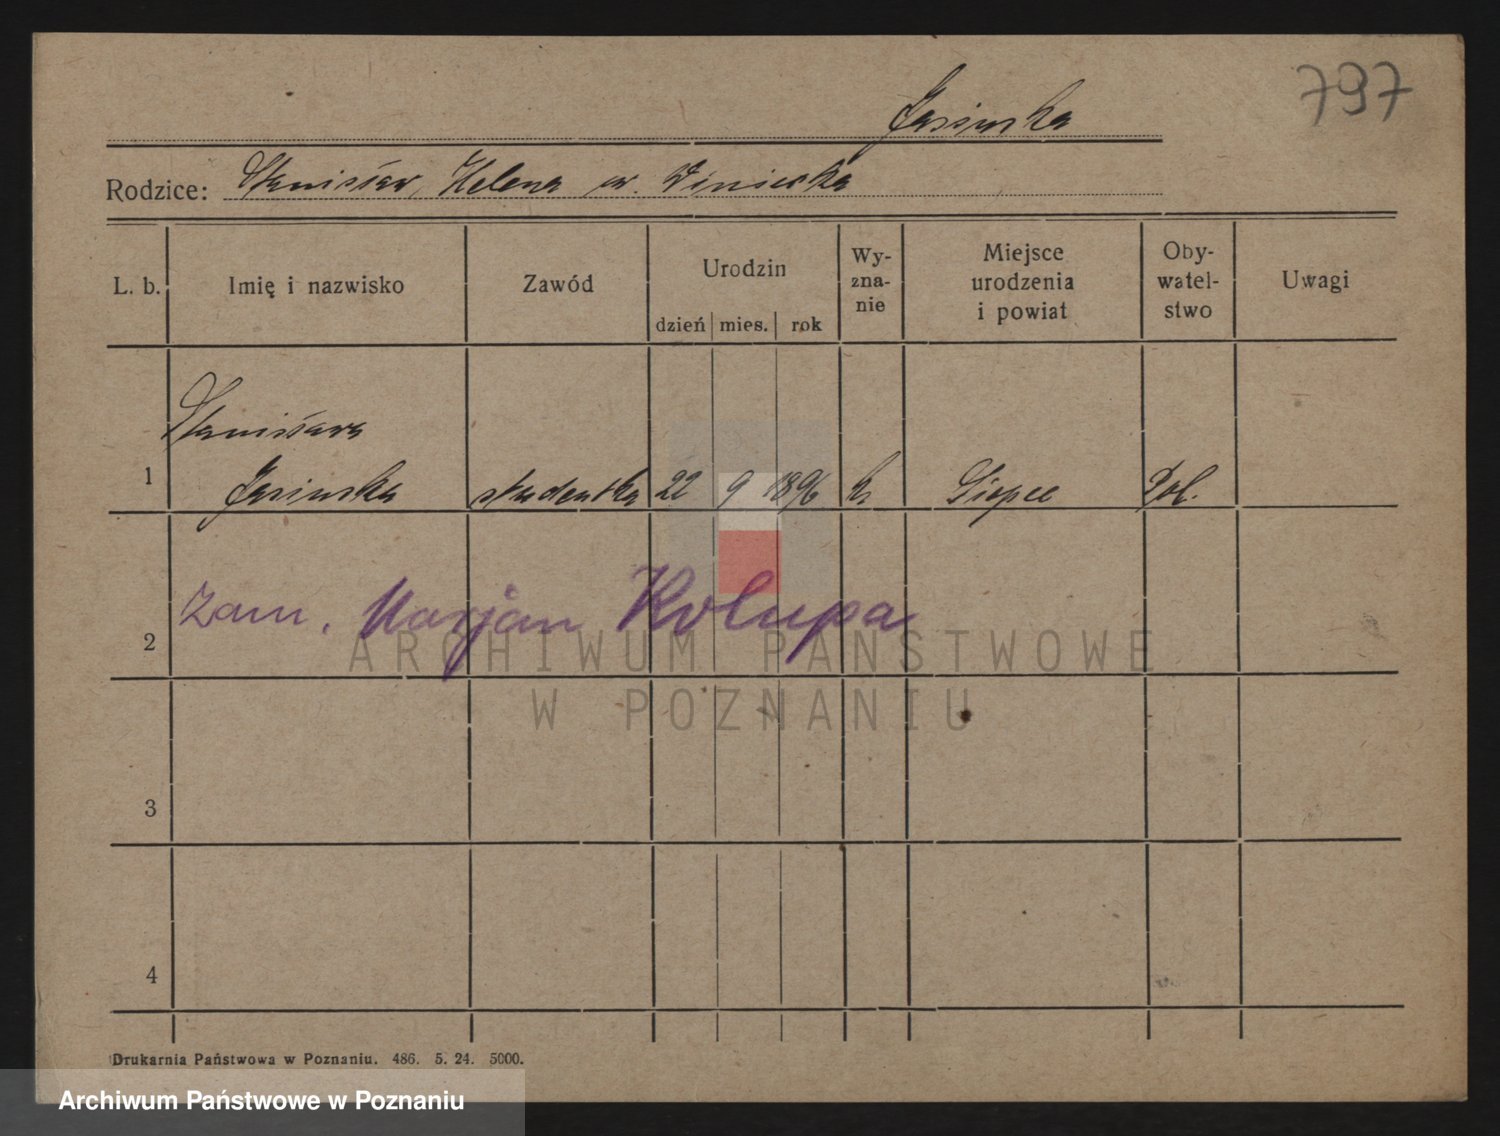 797
Jasińska
Rodzice: Stanisław, Helena
L. b. Imię i nazwisko Zawód Urodzin dzień mies. rok Wy-zna-nie Miejsce urodzenia i powiat Oby-watel-stwo Uwagi
Stanisława
1 Jasińska studentka 22 9 1896 k Pol.
2 zam. Marjan Kolupa
ARCHIWUM PAŃSTWOWE
W POZNANIU
3
4
Drukarnia Państwowa w Poznaniu. 486. 5. 24. 5000.
Archiwum Państwowe w Poznaniu